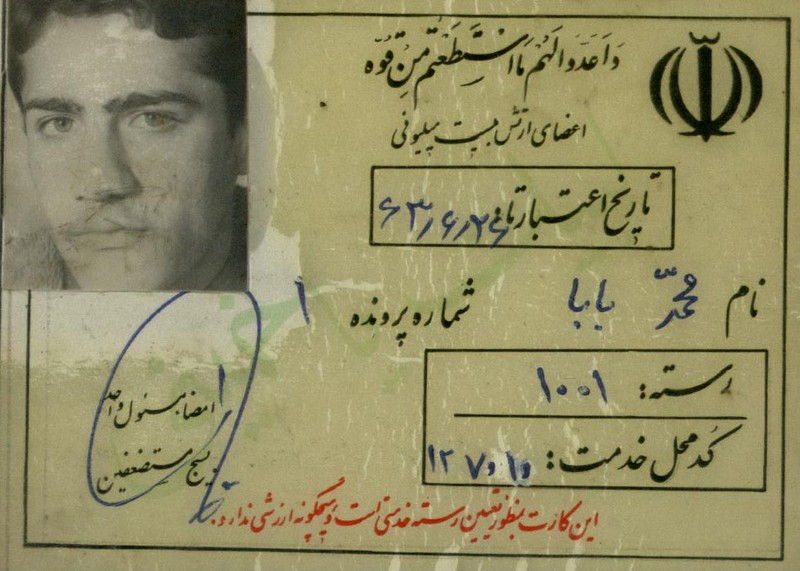 وَ اَعِدّوا لَهُم مَا استَطَعتُم مِن قُوَّه
اعضای ارتش بیست میلیونی
تاریخ اعتبار تا: ۶۳٫۶٫۲۶
نام محمّد بابا
شماره پرونده ۱
رسته: ۱۰۰۱
کُد محل خدمت:
امضا مسئول واحد
بسیج مستضعفین
این کارت بمنظور تعیین رسته خدمتی است و هیچگونه ارزشی ندارد.